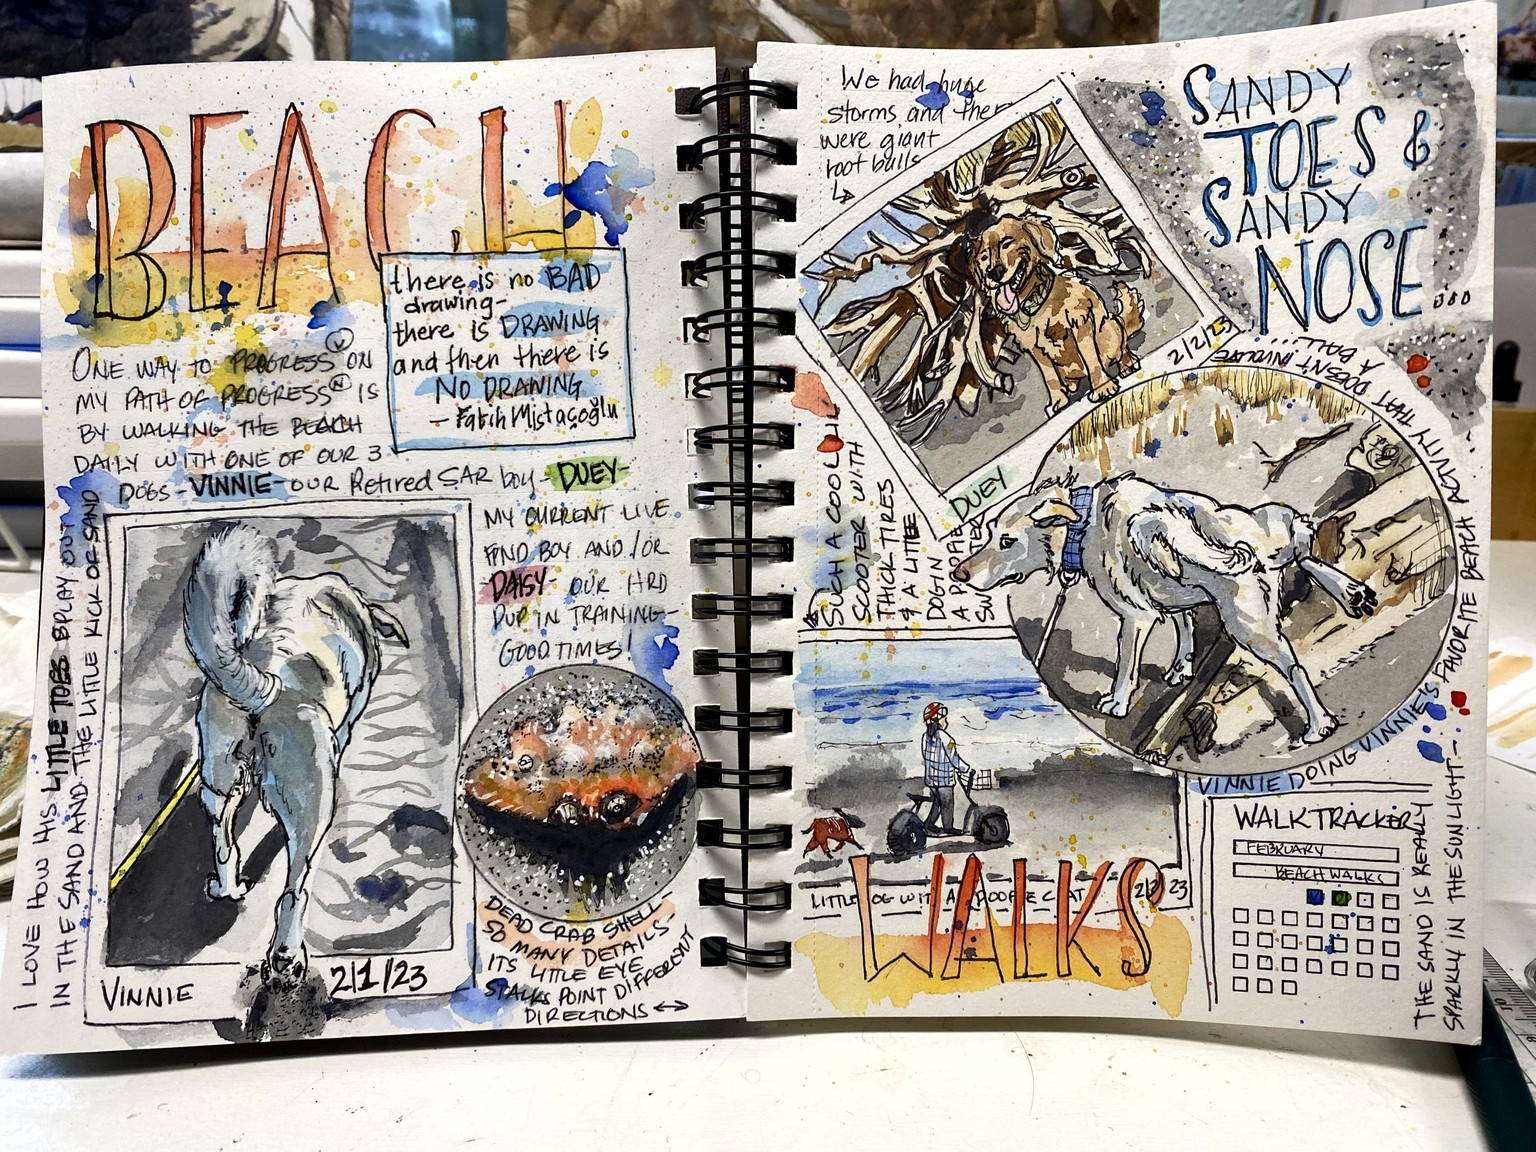 BEACH
there is no BAD
drawing-
there is DRAWING
and then there is
NO DRAWING
- Fatih Mistaçoğlu
ONE WAY TO PROGRESS (V) ON
MY PATH OF PROGRESS (N) IS
BY WALKING THE BEACH
DAILY WITH ONE OF OUR 3
DOGS - VINNIE - OUR Retired SAR boy - DUEY -
MY CURRENT LIVE
FIND BOY AND/OR
DAISY - OUR HRD
PUP IN TRAINING -
GOOD TIMES!
I LOVE HOW HIS LITTLE TOES SPLAY OUT
IN THE SAND AND THE LITTLE KICK OF SAND
VINNIE
2/1/23
DEAD CRAB SHELL -
SO MANY DETAILS -
ITS LITTLE EYE
STALKS POINT DIFFERENT
DIRECTIONS ↔
We had huge
storms and there
were giant
root balls
SANDY
TOES &
SANDY
NOSE...
2/2/23
DUEY
SUCH A COOL
SCOOTER WITH
THICK TIRES
& A LITTLE
DOG IN
VINNIE DOING VINNIE'S FAVORITE BEACH ACTIVITY THAT DOESN'T INVOLVE
A BALL...
WALKS
WALK TRACKER
FEBRUARY
BEACH WALKS
THE SAND IS REALLY
SPARKLY IN THE SUNLIGHT -